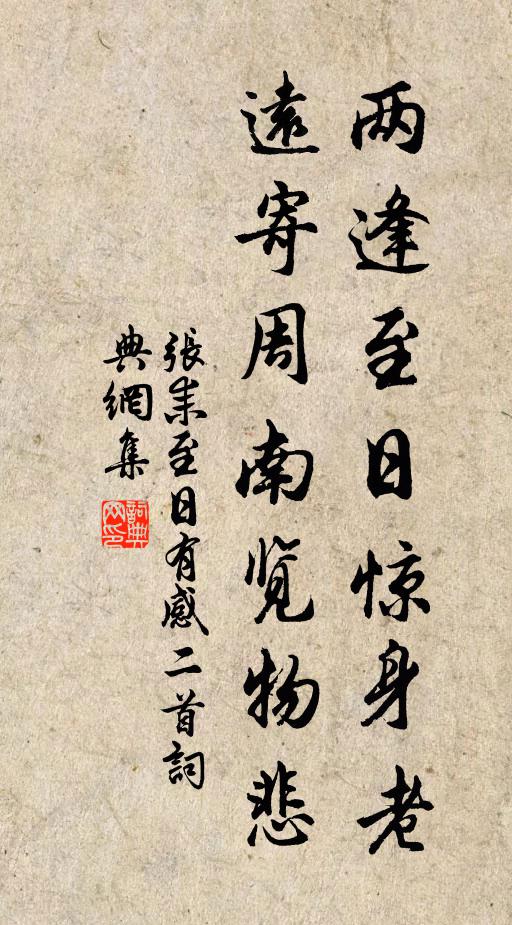 两逢至日惊身老
遠寄周南览物悲
張耒至日有感二首詞
典網集
詞典
网印